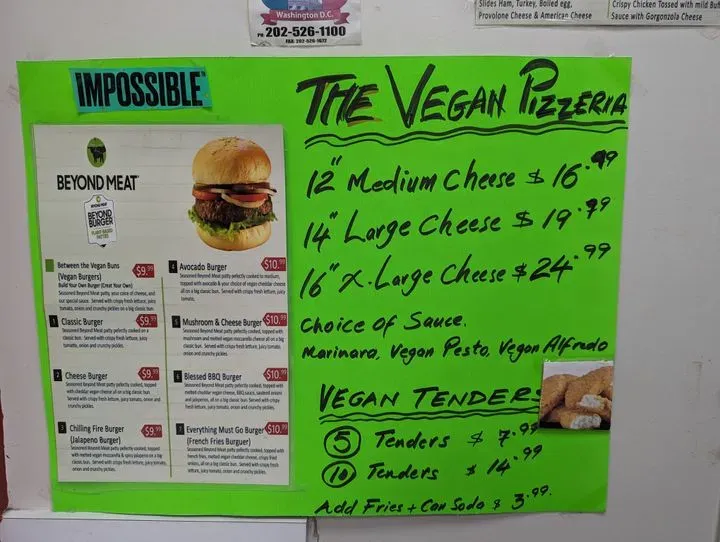 Washington D.C.
PH: 202-526-1100
FAX: 202-526-1672
Slides Ham, Turkey, Boiled egg,
Provolone Cheese & American Cheese
Crispy Chicken Tossed with mild Bu
Sauce with Gorgonzola Cheese
IMPOSSIBLE
BEYOND MEAT
BEYOND MEAT
BEYOND
BURGER
PLANT-BASED
PATTIES
Between the Vegan Buns $9.99
(Vegan Burgers)
Build Your Own Burger (Creat Your Own)
Seasoned Beyond Meat patty, your choice of cheese, and
our special sauce. Served with crispy fresh lettuce, juicy
tomato, onion and crunchy pickles on a big classic bun.
1 Classic Burger $9.99
Seasoned Beyond Meat patty pefectly cooked on a
classic bun. Served with crispy fresh lettuce, juicy
tomato, onion and crunchy pickles.
2 Cheese Burger $9.99
Seasoned Beyond Meat patty pefectly cooked, topped
with cheddar vegan cheese all on a big classic bun.
Served with crispy fresh lettuce, juicy tomato, onion and
crunchy pickles.
3 Chilling Fire Burger $9.99
(Jalapeno Burger)
Seasoned Beyond Meat patty pefectly cooked, topped
with melted vegan mozzarella & spicy jalapeno on a big
classic bun. Served with crispy fresh lettuce, juicy tomato,
onion and crunchy pickles.
4 Avocado Burger $10.99
Seasoned Beyond Meat patty pefectly cooked to medium,
topped with avocado & your choice of vegan cheddar cheese
all on a big classic bun. Served with crispy fresh lettuce, juicy
tomato,
5 Mushroom & Cheese Burger $10.99
Seasoned Beyond Meat patty pefectly cooked, topped with
mushroom and melted vegan mozzarella cheese all on a big
classic bun. Served with crispy fresh lettuce, juicy tomato,
onion and crunchy pickles.
6 Blessed BBQ Burger $10.99
Seasoned Beyond Meat patty pefectly cooked, topped with
melted cheddar vegan cheese, BBQ sauce, sauteed onions
and jalapenos, all on a big classic bun. Served with crispy
fresh lettuce, juicy tomato, onion and crunchy pickles.
7 Everything Must Go Burger $10.99
(French Fries Burguer)
Seasoned Beyond Meat patty pefectly cooked, topped with
french fries, melted vegan cheddar cheese, crispy fried
onions, all on a big classic bun. Served with crispy fresh
lettuce, juicy tomato, onion and crunchy pickles.
THE VEGAN PIZZERIA
12" Medium Cheese $ 16.99
14" Large Cheese $ 19.99
16" X. Large Cheese $ 24.99
Choice of Sauce.
Marinara, Vegan Pesto, Vegan Alfredo
VEGAN TENDERS
5 Tenders $ 7.99
10 Tenders $ 14.99
Add Fries + Can Soda $ 3.99.